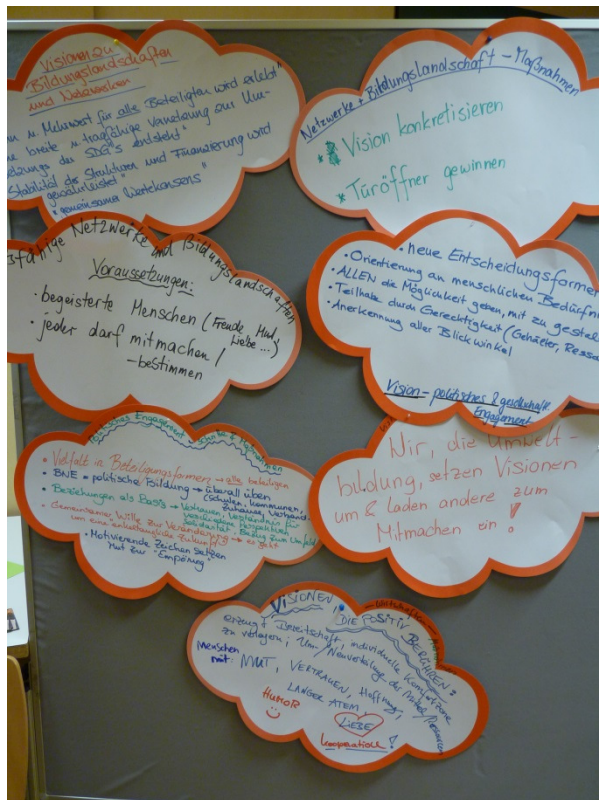 Visionen zu
Bildungslandschaften
und Netzwerken
n u. Mehrwert für alle Beteiligten wird erlebt"
ne breite u. tragfähige Vernetzung zur Um-
setzung der SDG's entsteht"
Stabilität der Strukturen und Finanzierung wird
gewährleistet"
"gemeinsamer Wertekonsens"
Netzwerke + Bildungslandschaft - Maßnahmen
* Vision konkretisieren
* Türöffner gewinnen
fähige Netzwerke und Bildungslandschaften
Voraussetzungen:
· begeisterte Menschen (Freude, Mut,
Liebe...)
· jeder darf mitmachen /
-bestimmen
· neue Entscheidungsformen
· Orientierung an menschlichen Bedürfni
· ALLEN die Möglichkeit geben, mit zu gestal
· Teilhabe durch Gerechtigkeit (Gehälter, Ressou
· Anerkennung aller Blickwinkel
Vision - politisches & gesellschaftl.
Engagement
politisches Engagement - Schritte & Maßnahmen
· Vielfalt in Beteiligungsformen → alle beteiligen
· BNE = politische Bildung → überall üben
(Schulen, Kommunen,
Zuhause, Verband..
· Beziehungen als Basis → Vertrauen, Verständnis für
verschiedene Perspektiven
Solidarität, Bezug zum Umfeld
· Gemeinsamer Wille zur Veränderung → es geht
um eine enkeltaugliche Zukunft
· Motivierende Zeichen setzen
Mut zur "Empörung"
Wir, die Umwelt-
bildung, setzen Visionen
um & laden andere zum
Mitmachen ein !
VISIONEN,
DIE POSITIV BERÜHREN:
erzeugt Bereitschaft, individuelle Komfortzone
zu verlagern; Um-/Neuverteilung der Mittel/Ressourcen
Menschen
mit: MUT, VERTRAUEN, Hoffnung,
LANGER ATEM,
HUMOR
LIEBE
Kooperation !